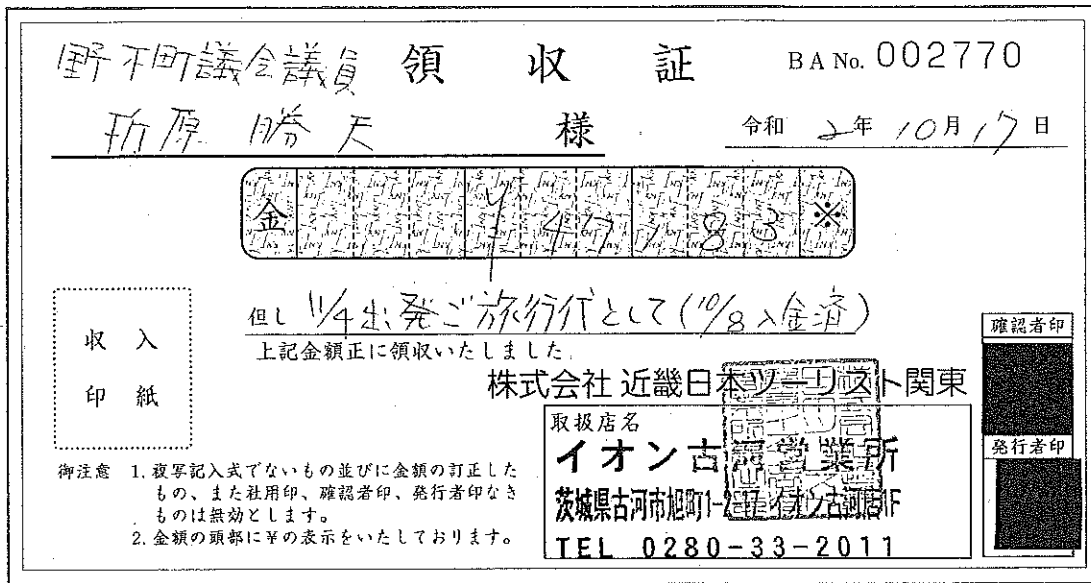 野木町議会議員 領収証 BA No. 002770
折原 勝夫 様 令和 2年 10月 17日
金 ¥47183※
但し 11/4出発ご旅行代として(10/8入金済)
上記金額正に領収いたしました。
収入
印紙
株式会社 近畿日本ツーリスト関東
取扱店名
イオン古河営業所
茨城県古河市旭町1-2-17 イオン古河店1F
TEL 0280-33-2011
確認者印
発行者印
御注意 1. 複写記入式でないもの並びに金額の訂正した
もの、また社用印、確認者印、発行者印なき
ものは無効とします。
2. 金額の頭部に¥の表示をいたしております。